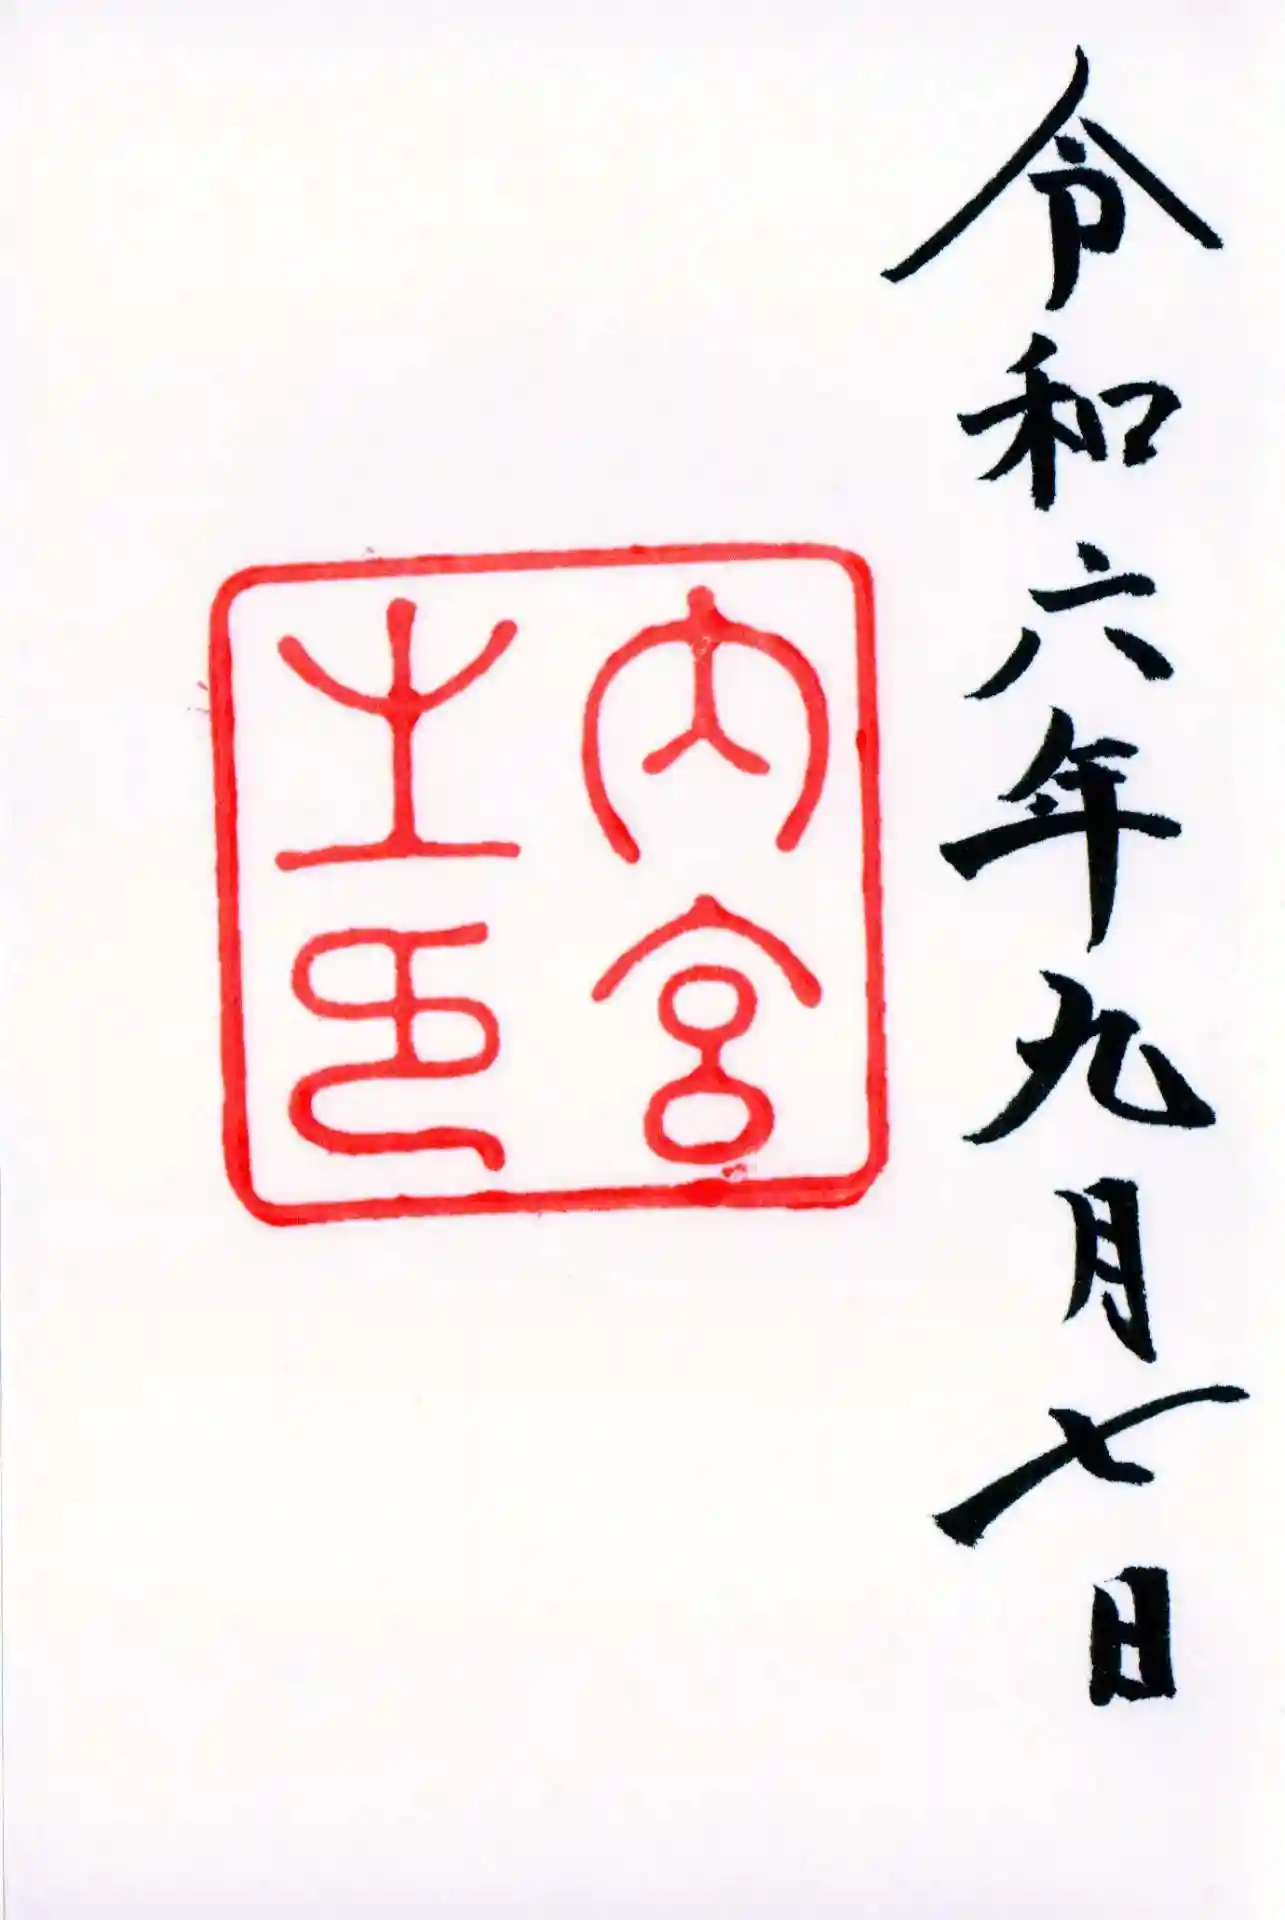 令和六年九月七日
内宮
之印